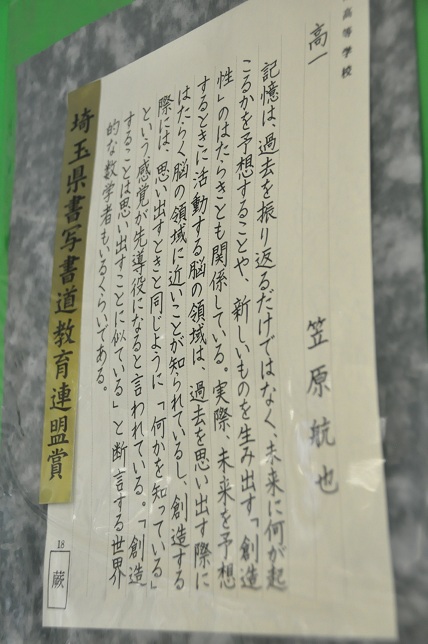 高等学校
高一
笠原航也
記憶は、過去を振り返るだけではなく、未来に何が起
こるかを予想することや、新しいものを生み出す「創造
性」のはたらきとも関係している。実際、未来を予想
するときに活動する脳の領域は、過去を思い出す際に
はたらく脳の領域に近いことが知られているし、創造する
際には、思い出すときと同じように「何かを知っている」
という感覚が先導役になると言われている。「創造
することは思い出すことに似ている」と断言する世界
的な数学者もいるくらいである。
埼玉県書写書道教育連盟賞
18
蕨